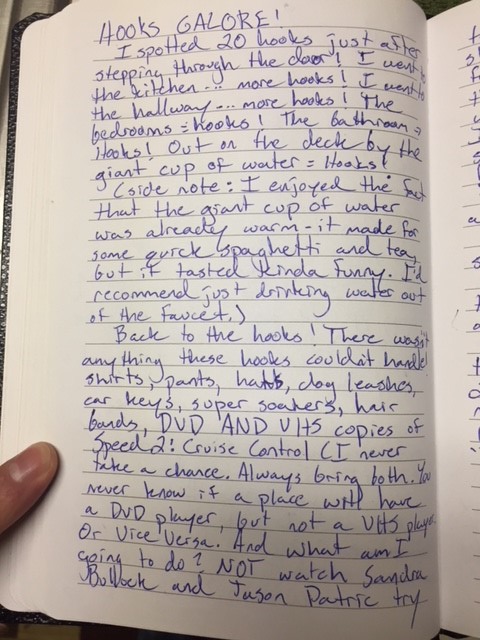 HOOKS GALORE!
I spotted 20 hooks just after
stepping through the door! I went to
the kitchen... more hooks! I went to
the hallway... more hooks! The
bedrooms = hooks! The bathroom →
Hooks! Out on the deck by the
giant cup of water = Hooks!
(side note: I enjoyed the fact
that the giant cup of water
was already warm - it made for
some quick spaghetti and tea,
but it tasted kinda funny. I'd
recommend just drinking water out
of the faucet.)
Back to the hooks! There wasn't
anything these hooks couldn't handle!
shirts, pants, hats, dog leashes,
car keys, super soakers, hair
bands, DVD AND VHS copies of
Speed 2: Cruise Control (I never
take a chance. Always bring both. You
never know if a place will have
a DVD player, but not a VHS player.
Or Vice Versa. And what am I
going to do? NOT watch Sandra
Bullock and Jason Patric try